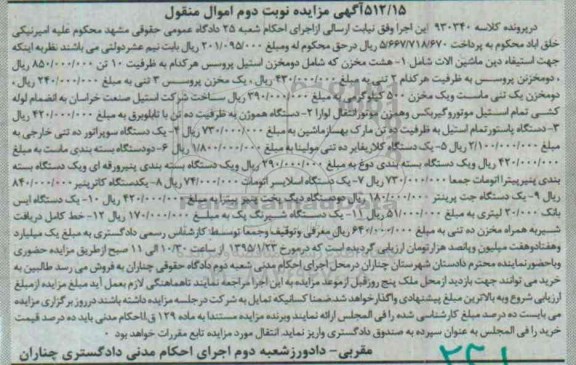 ۵۱۲/۱۵آگهی مزایده نوبت دوم اموال منقول
درپرونده کلاسه ۹۳۰۳۴۰ این اجرا وفق نیابت ارسالی ازاجرای احکام شعبه ۲۵ دادگاه عمومی حقوقی مشهد محکوم علیه امیرنیکی
خلق اباد محکوم به پرداخت ۵/۶۶۷/۷۱۸/۶۷۰ ریال درحق محکوم له ومبلغ ۲۰۱/۰۹۵/۰۰۰ ریال بابت نیم عشردولتی می باشند نظربه اینکه
جهت استیفاء دین ماشین الات شامل ۱- هشت مخزن که شامل دومخزن استیل پروسس هرکدام به ظرفیت ۱۰ تن ۸۵۰/۰۰۰/۰۰۰ ریال
، دومخزن پروسس به ظرفیت هرکدام ۲ تنی به مبلغ ۴۳۰/۰۰۰/۰۰۰ ریال ، یک مخزن پروسس ۳ تنی به مبلغ ۲۴۰/۰۰۰/۰۰۰ ریال ،
دومخزن یک تنی ماست ویک مخزن ۵۰۰ کیلویی به مبلغ ۳۹۰/۰۰۰/۰۰۰ ریال ساخت شرکت استیل صنعت خراسان به انضمام لوله
کشی تمام استیل موتوروگیربکس وهمزن وموتورانتقال لوازا ۲- دستگاه هموژن به ظرفیت ده تن با تابلوبرق به مبلغ ۴۲۰/۰۰۰/۰۰۰ ریال
۳- دستگاه پاستورتمام استیل به ظرفیت ده تن مارک بهسازماشین به مبلغ ۷۳۰/۰۰۰/۰۰۰ ریال ۴- یک دستگاه سوپراتور ده تنی خارجی به
مبلغ ۲/۱۰۰/۰۰۰/۰۰۰ ریال ۵- یک دستگاه کلاریفایر ده تنی مولینا به مبلغ ۱/۸۰۰/۰۰۰/۰۰۰ ریال ۶- دودستگاه بسته بندی ماست به مبلغ
۴۲۰/۰۰۰/۰۰۰ ریال ویک دستگاه بسته بندی دوغ به مبلغ ۲۹۰/۰۰۰/۰۰۰ ریال ویک دستگاه بسته بندی پنیرورقه ای ویک دستگاه بسته
بندی پنیرپیتزا اتومات جمعا ۷۳۰/۰۰۰/۰۰۰ ریال ۷- یک دستگاه اسلایسر اتومات ۷۴/۰۰۰/۰۰۰ ریال ۸- یکدستگاه کاترپنیر ۸۴۰/۰۰۰/۰۰۰
ریال ۹- یک دستگاه جت پرینتر ۱۰۰/۰۰۰/۰۰۰ ریال دودستگاه دیگ پخت پنیر پیتزا به مبلغ ۴۲۰/۰۰۰/۰۰۰ ریال ۱۰- یک دستگاه ایس
بانک ۲۰/۰۰۰ لیتری به مبلغ ۵۱/۰۰۰/۰۰۰ ریال ۱۱- یک دستگاه شیرنگ پک به مبلغ ۱۷۰/۰۰۰/۰۰۰ ریال ۱۲- خط کامل دریافت
شیربه همراه مخزن ده تنی به مبلغ ۶۴۰/۰۰۰/۰۰۰ ریال معرفی وتوقیف وجمعا توسط کارشناس رسمی دادگستری به مبلغ یک میلیارد
وهفتادوهفت میلیون وپانصد هزارتومان ارزیابی گردیده است که درمورخ ۱۳۹۵/۱/۲۳ از ساعت ۱۰/۳۰ الی ۱۱ صبح ازطریق مزایده حضوری
وباحضورنماینده محترم دادستان شهرستان چناران درمحل اجرای احکام مدنی شعبه دوم دادگاه حقوقی چناران به فروش می رسد طالبین به
خرید می توانند جهت بازدید ازمحل ملک پنج روزقبل ازموعد مزایده به این اجرا مراجعه نمایند تاهماهنگی لازم بعمل آید مبلغ مزایده ازمبلغ
ارزیابی شروع وبه بالاترین مبلغ پیشنهادی واگذارخواهد شدضمنا کسانیکه تمایل به شرکت درجلسه مزایده داشته باشند درروز برگزاری مزایده
می بایست ده درصد مبلغ کارشناسی شده را فی المجلس ارائه نمایند وبرنده مزایده مستندا به ماده ۱۲۹ ق.ااحکام مدنی باید ده درصد قیمت
خرید را فی المجلس به عنوان سپرده به صندوق دادگستری واریز نماید. انتقال مورد مزایده تابع مقررات خواهد بود
مقربی- دادورزشعبه دوم اجرای احکام مدنی دادگستری چناران